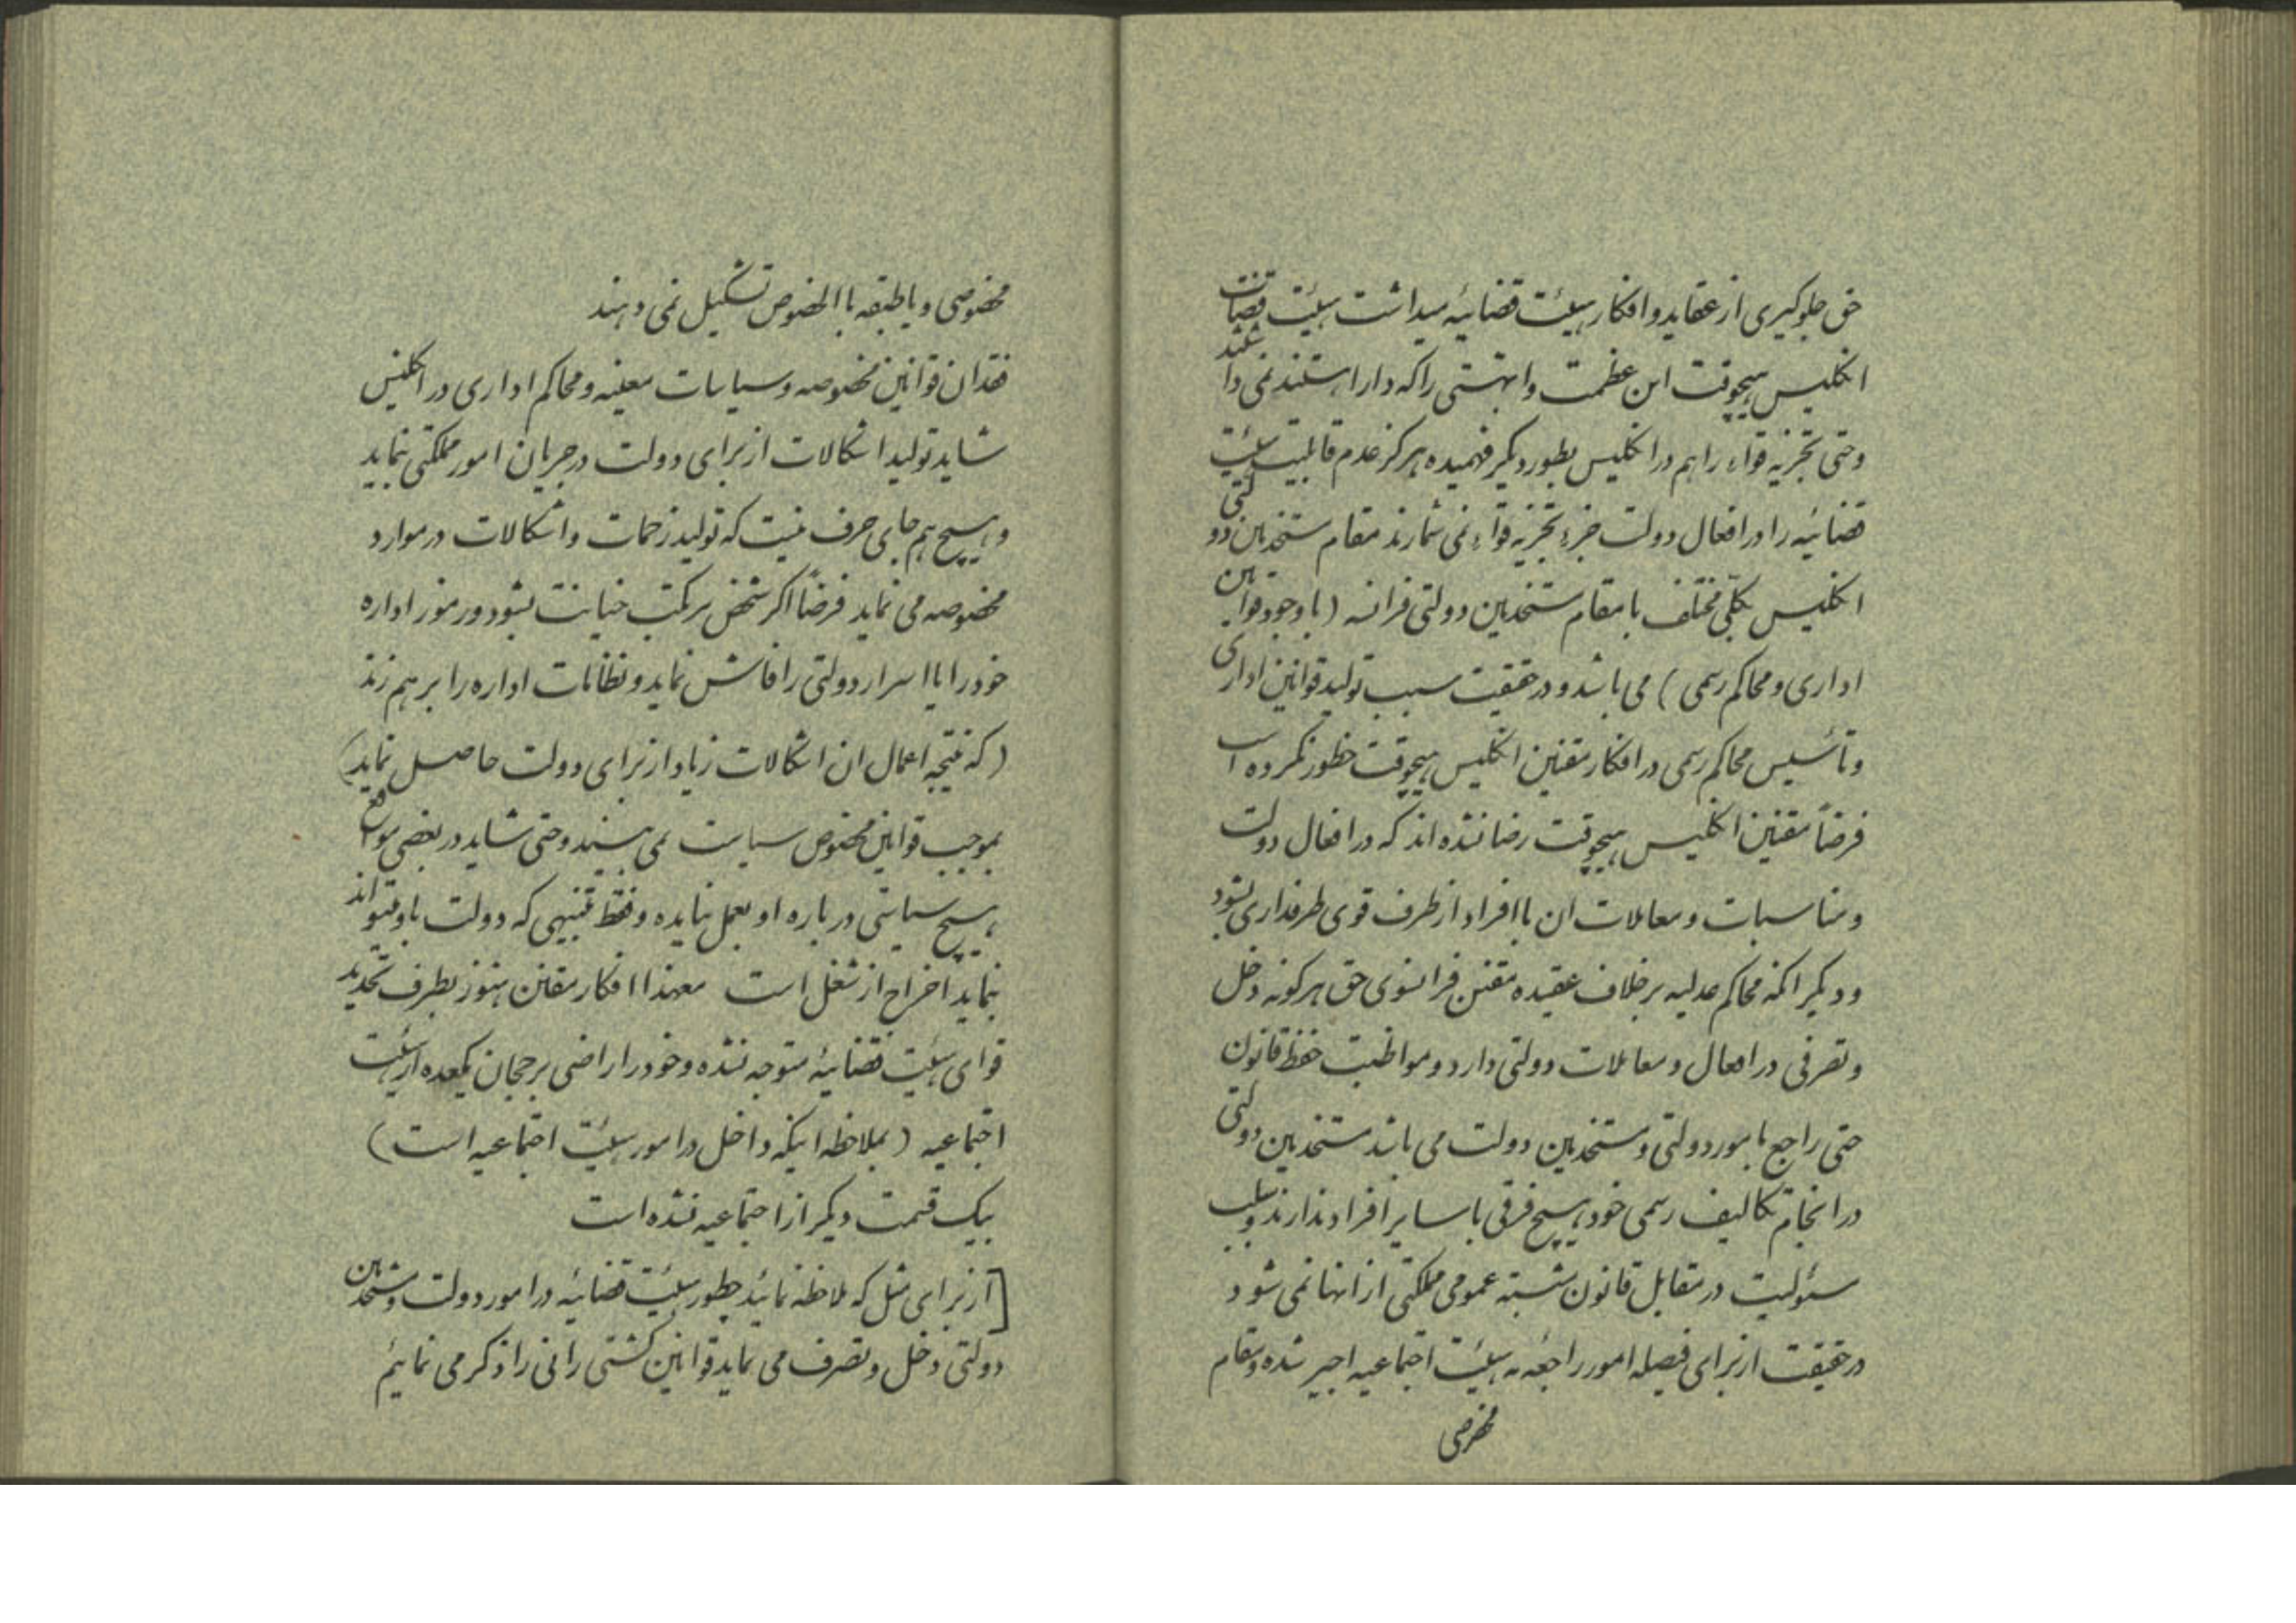 حق جلوگیری از عقاید و افکار هیئت قضائیه میداشت هیئت قضات
انگلیس هیچوقت این عظمت و ابهتی را که دارا هستند نمی داشتند
و حتی تجزیه قواء را هم در انگلیس بطور دیگر فهمیده هرگز عدم قابلیت هیئت
قضائیه را در افعال دولت جزء تجزیه قواء نمی شمارند مقام مستخدمین دولتی
انگلیس بکلی مختلف با مقام مستخدمین دولتی فرانسه (با وجود قوانین
اداری و محاکم رسمی) می باشد و در حقیقت سبب تولید قوانین اداری
و تأسیس محاکم رسمی در افکار مقنین انگلیس هیچوقت خطور نکرده است
فرضاً مقنین انگلیس هیچوقت رضا نشده اند که در افعال دولت
و مناسبات و معاملات ان با افراد از طرف قوی طرفداری بشود
و دیگر انکه محاکم عدلیه برخلاف عقیده مقنن فرانسوی حق هرگونه دخل
و تصرفی در اعمال و معاملات دولتی دارد و مواظبت حفظ قانون
حتی راجع بامور دولتی و مستخدمین دولت می باشد مستخدمین دولتی
در انجام تکالیف رسمی خود هیچ فرقی با سایر افراد ندارند و سلب
مسئولیت در مقابل قانون مثبته عمومی مملکتی از انها نمی شود
در حقیقت از برای فیصله امور راجعه به هیئت اجتماعیه اجیر شده و مقام
مخصوصی
مخصوصی و یا طبقه با الخصوص تشکیل نمی دهند
فقدان قوانین مخصوصه و سیاسات معینه و محاکم اداری در انگلیس
شاید تولید اشکالات از برای دولت در جریان امور مملکتی بنماید
و هیچ هم جای حرف نیست که تولید زحمات و اشکالات در موارد
مخصوصه می نماید فرضاً اگر شخص مرتکب خیانت بشود و رموز اداره
خود را یا اسرار دولتی را فاش نماید و نظامات اداره را بر هم زند
(که نتیجه اعمال ان اشکالات زیاد از برای دولت حاصل نماید)
بموجب قوانین مخصوص سیاست نمی بیند و حتی شاید در بعضی مواقع
هیچ سیاستی در باره او بعمل نیایده و فقط تنبیهی که دولت باو میتواند
بنماید اخراج از شغل است معهذا افکار مقنن هنوز بطرف تحدید
قوای هیئت قضائیه متوجه نشده و خود را راضی برجحان یکعده از هیئت
اجتماعیه (بملاحظه اینکه داخل در امور هیئت اجتماعیه است)
بیک قسمت دیگر از اجتماعیه نشده است
[از برای مثل که ملاحظه نمائید چطور هیئت قضائیه در امور دولت و مستخدمین
دولتی دخل و تصرف می نماید قوانین کشتی رانی را ذکر می نمائیم